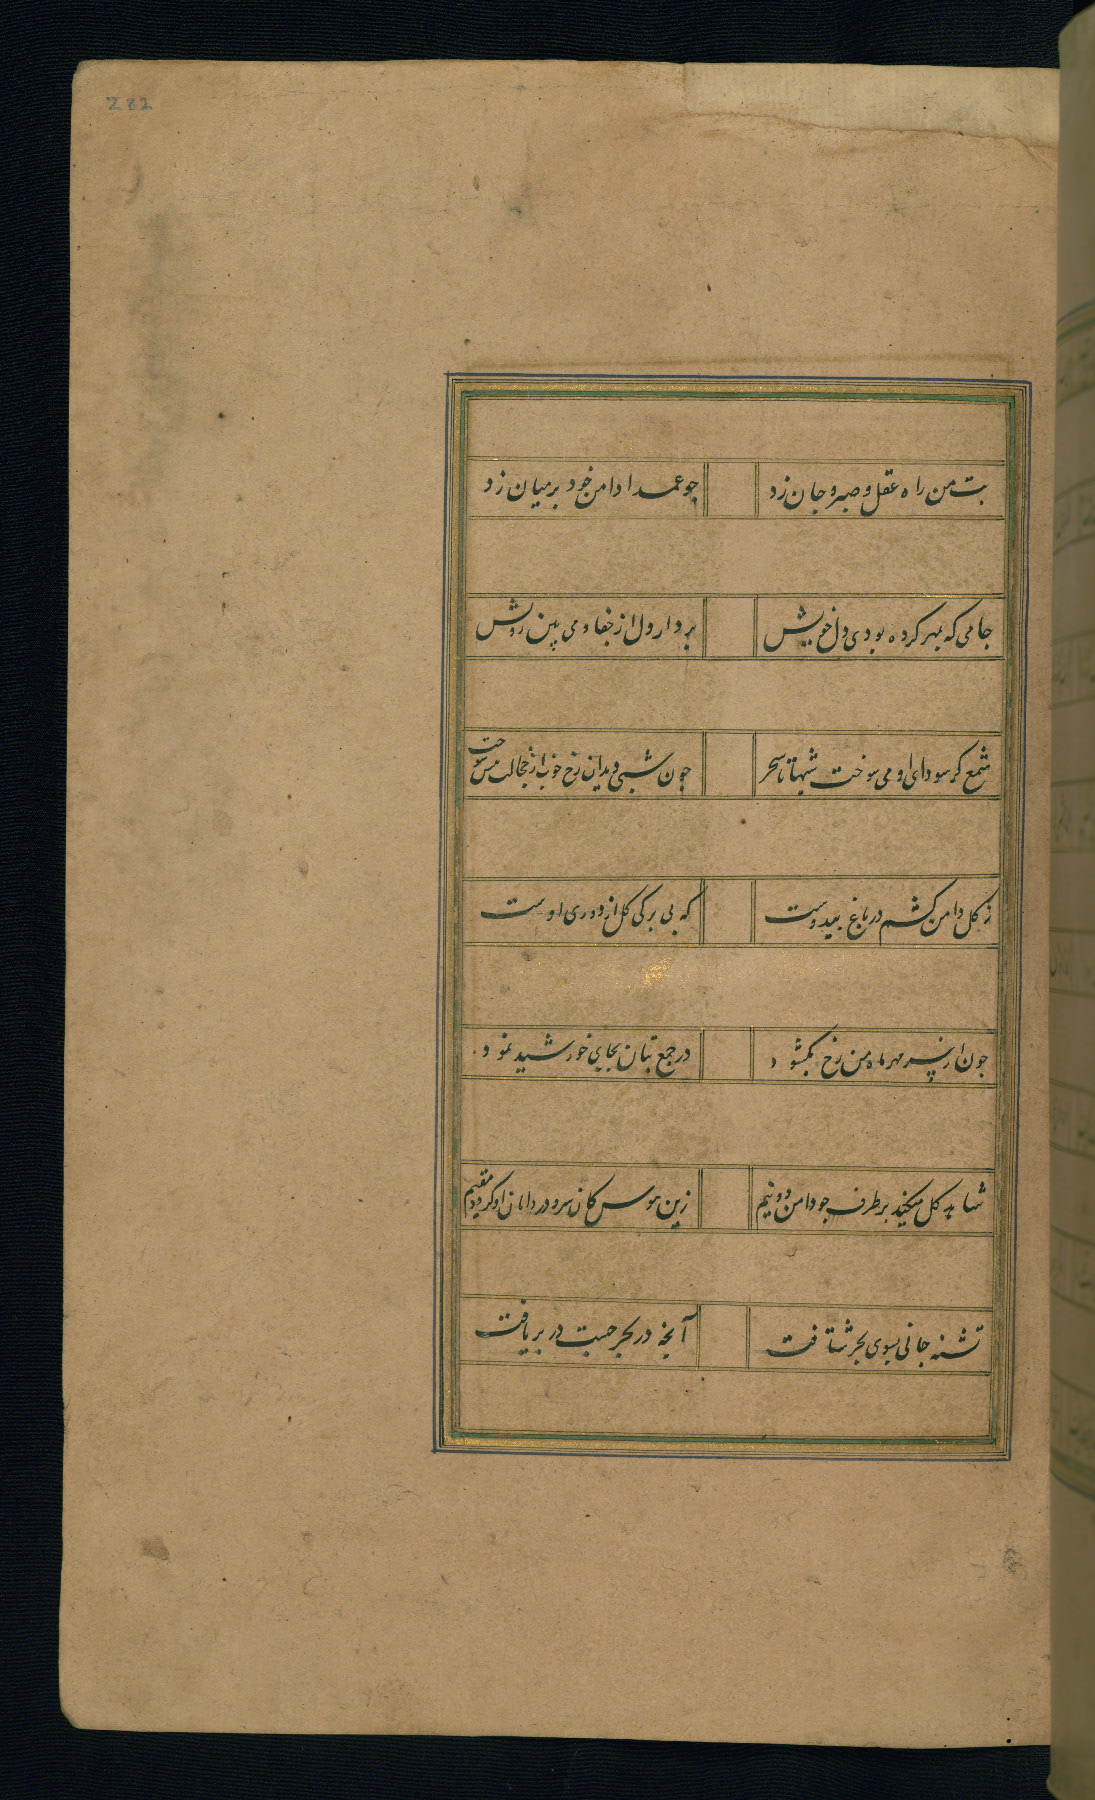 282
بت من راه عقل و صبر و جان زد چو عمدا دامن خود بر میان زد
جامی که بهر کرده بودی دل خویش بردار دل از جفا و می بین رویش
شمع کز سودای او می سوخت شبها تا سحر چون شبی دید آن رخ خوب از خجالت میسوخت
ز گل دامن کشم در باغ بیدوست که بی برکی گل از دوری اوست
چون از سر مهر ماه من رخ بگشود در جمع بتان بجای خورشید نمود
شاید گل میکند بر طرف جو دامن دو نیم زین هوس کان سرو در دامان او گردد مقیم
تشنه جانی بسوی بحر شتافت آنچه در بحر جست در بر یافت